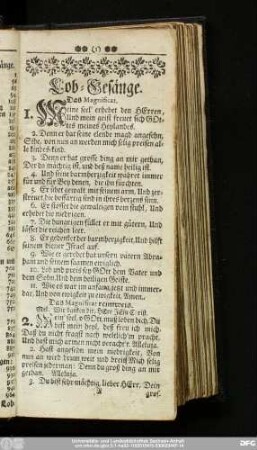 Lob-Gesänge.
Das Magnificat.
1. Meine seel' erhebet den HErren,
Und mein geist freuet sich GOt-
tes meines Heylandes.
2. Denn er hat seine elende magd angesehn,
Sihe, von nun an werden mich selig preisen al-
le kindes-kind.
3. Denn er hat grosse ding an mir gethan,
Der da mächtig ist, und deß name heilig ist.
4. Und seine barmhertzigkeit währet immer
für und für Bey denen, die ihn fürchten.
5. Er übet gewalt mit seinem arm, Und zer-
streuet, die hoffärtig sind in ihres hertzens sinn.
6. Er stösset die gewaltigen vom stuhl, Und
erhebet die niedrigen.
7. Die hungrigen füllet er mit gütern, Und
lässet die reichen leer.
8. Er gedencket der barmhertzigkeit, Und hilfft
seinem diener Israel auf.
9. Wie er geredet hat unsern vätern Abra-
ham und seinem saamen ewiglich.
10. Lob und preis sey GOtt dem Vater und
dem Sohn, Und dem heiligen Geiste.
11. Wie es war im anfang, jetzt und immer-
dar, Und von ewigkeit zu ewigkeit, Amen.
Das Magnificat reimweis.
Mel. Wir dancken dir, HErr JEsu Christ.
2. Mein' seel, o GOtt, muß loben dich, Du
bist mein heyl, deß freu ich mich,
Daß du nicht fragst nach weltlich'm pracht,
Und hast mich armen nicht veracht't. Alleluja.
2. Hast angesehn mein niedrigkeit, Von
nun an werd drum weit und breit Mich selig
preisen jederman: Denn du groß ding an mir
gethan. Alleluja.
3. Du bist sehr mächtig, lieber HErr. Dein
A
groß
Lob